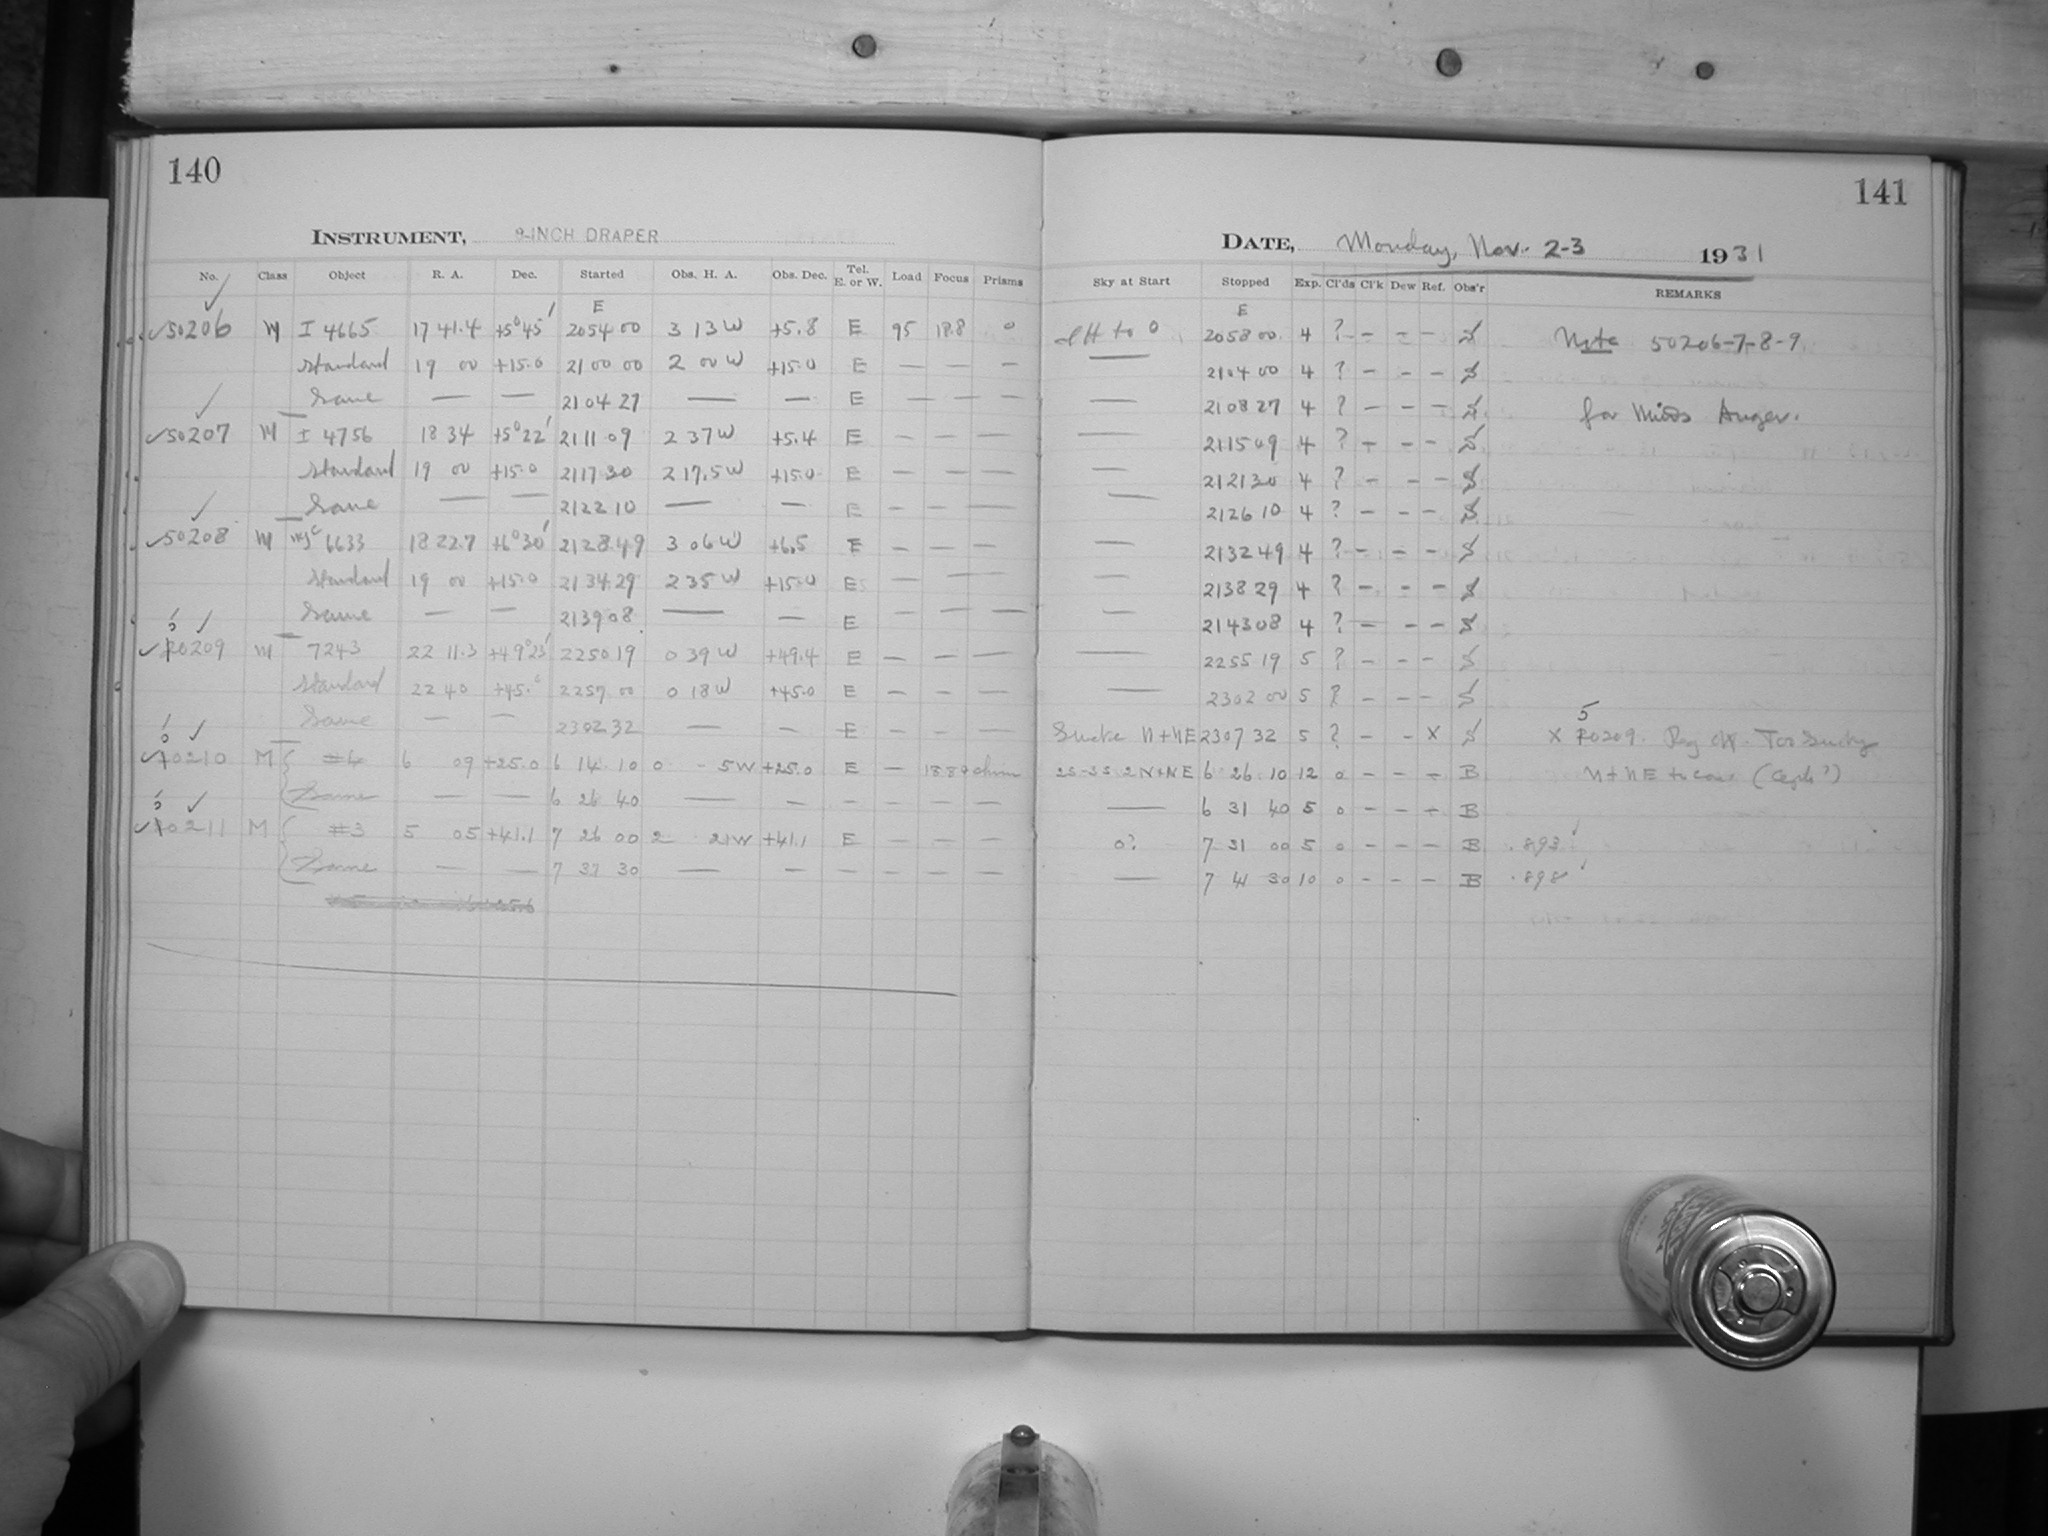 140
INSTRUMENT, 8-INCH DRAPER
No. Class Object R. A. Dec. Started Obs. H. A. Obs. Dec. Tel. E. or W. Load Focus Prisms
E
50206 M I 4665 17 41.4 +5°45' 2054 00 3 13 W +5.8 E 95 18.8 0
Standard 19 00 +15.0 21 00 00 2 00 W +15.0 E — — —
Same — — 2104 27 — — E — — —
50207 M I 4756 18 34 +5°22' 2111 09 2 37 W +5.4 E — — —
Standard 19 00 +15.0 2117 30 2 17.5 W +15.0 E — — —
Same — — 2122 10 — — E — — —
50208 M 6633 18 22.7 +6°30' 2128 49 3 06 W +6.5 E — — —
Standard 19 00 +15.0 2134 29 2 35 W +15.0 E — — —
Same — — 2139 08 — — E — — —
0209 M 7243 22 11.3 +49°23' 2250 19 0 39 W +49.4 E — — —
Standard 22 40 +45.0 2257 00 0 18 W +45.0 E — — —
Same — — 2302 32 — — E — — —
0210 M #4 6 09 +25.0 6 14 10 0 5 W +25.0 E — 18.8
Same — — 6 26 40 — — — — — —
0211 M #3 5 05 +41.1 7 26 00 2 21 W +41.1 E — — —
Same — — 7 37 30 — — — — — —
141
DATE, Monday, Nov. 2-3 1931
Sky at Start Stopped Exp. Cl'ds Cl'k Dew Ref. Obs'r REMARKS
E
to 0 2058 00 4 ? — — — S Note 50206-7-8-9
— 2104 00 4 ? — — — S
— 2108 27 4 ? — — — S for Miss Anger.
— 2115 09 4 ? — — — S
— 2121 30 4 ? — — — S
— 2126 10 4 ? — — — S
— 2132 49 4 ? — — — S
— 2138 29 4 ? — — — S
— 2143 08 4 ? — — — S
— 2255 19 5 ? — — — S
— 2302 00 5 ? — — — S
5
N+NE 2307 32 5 ? — — X S X 0209. Too
2 N+NE 6 26 10 12 0 — — — B N+NE to
— 6 31 40 5 0 — — — B
0? 7 31 00 5 0 — — — B .893
— 7 41 30 10 0 — — — B .898